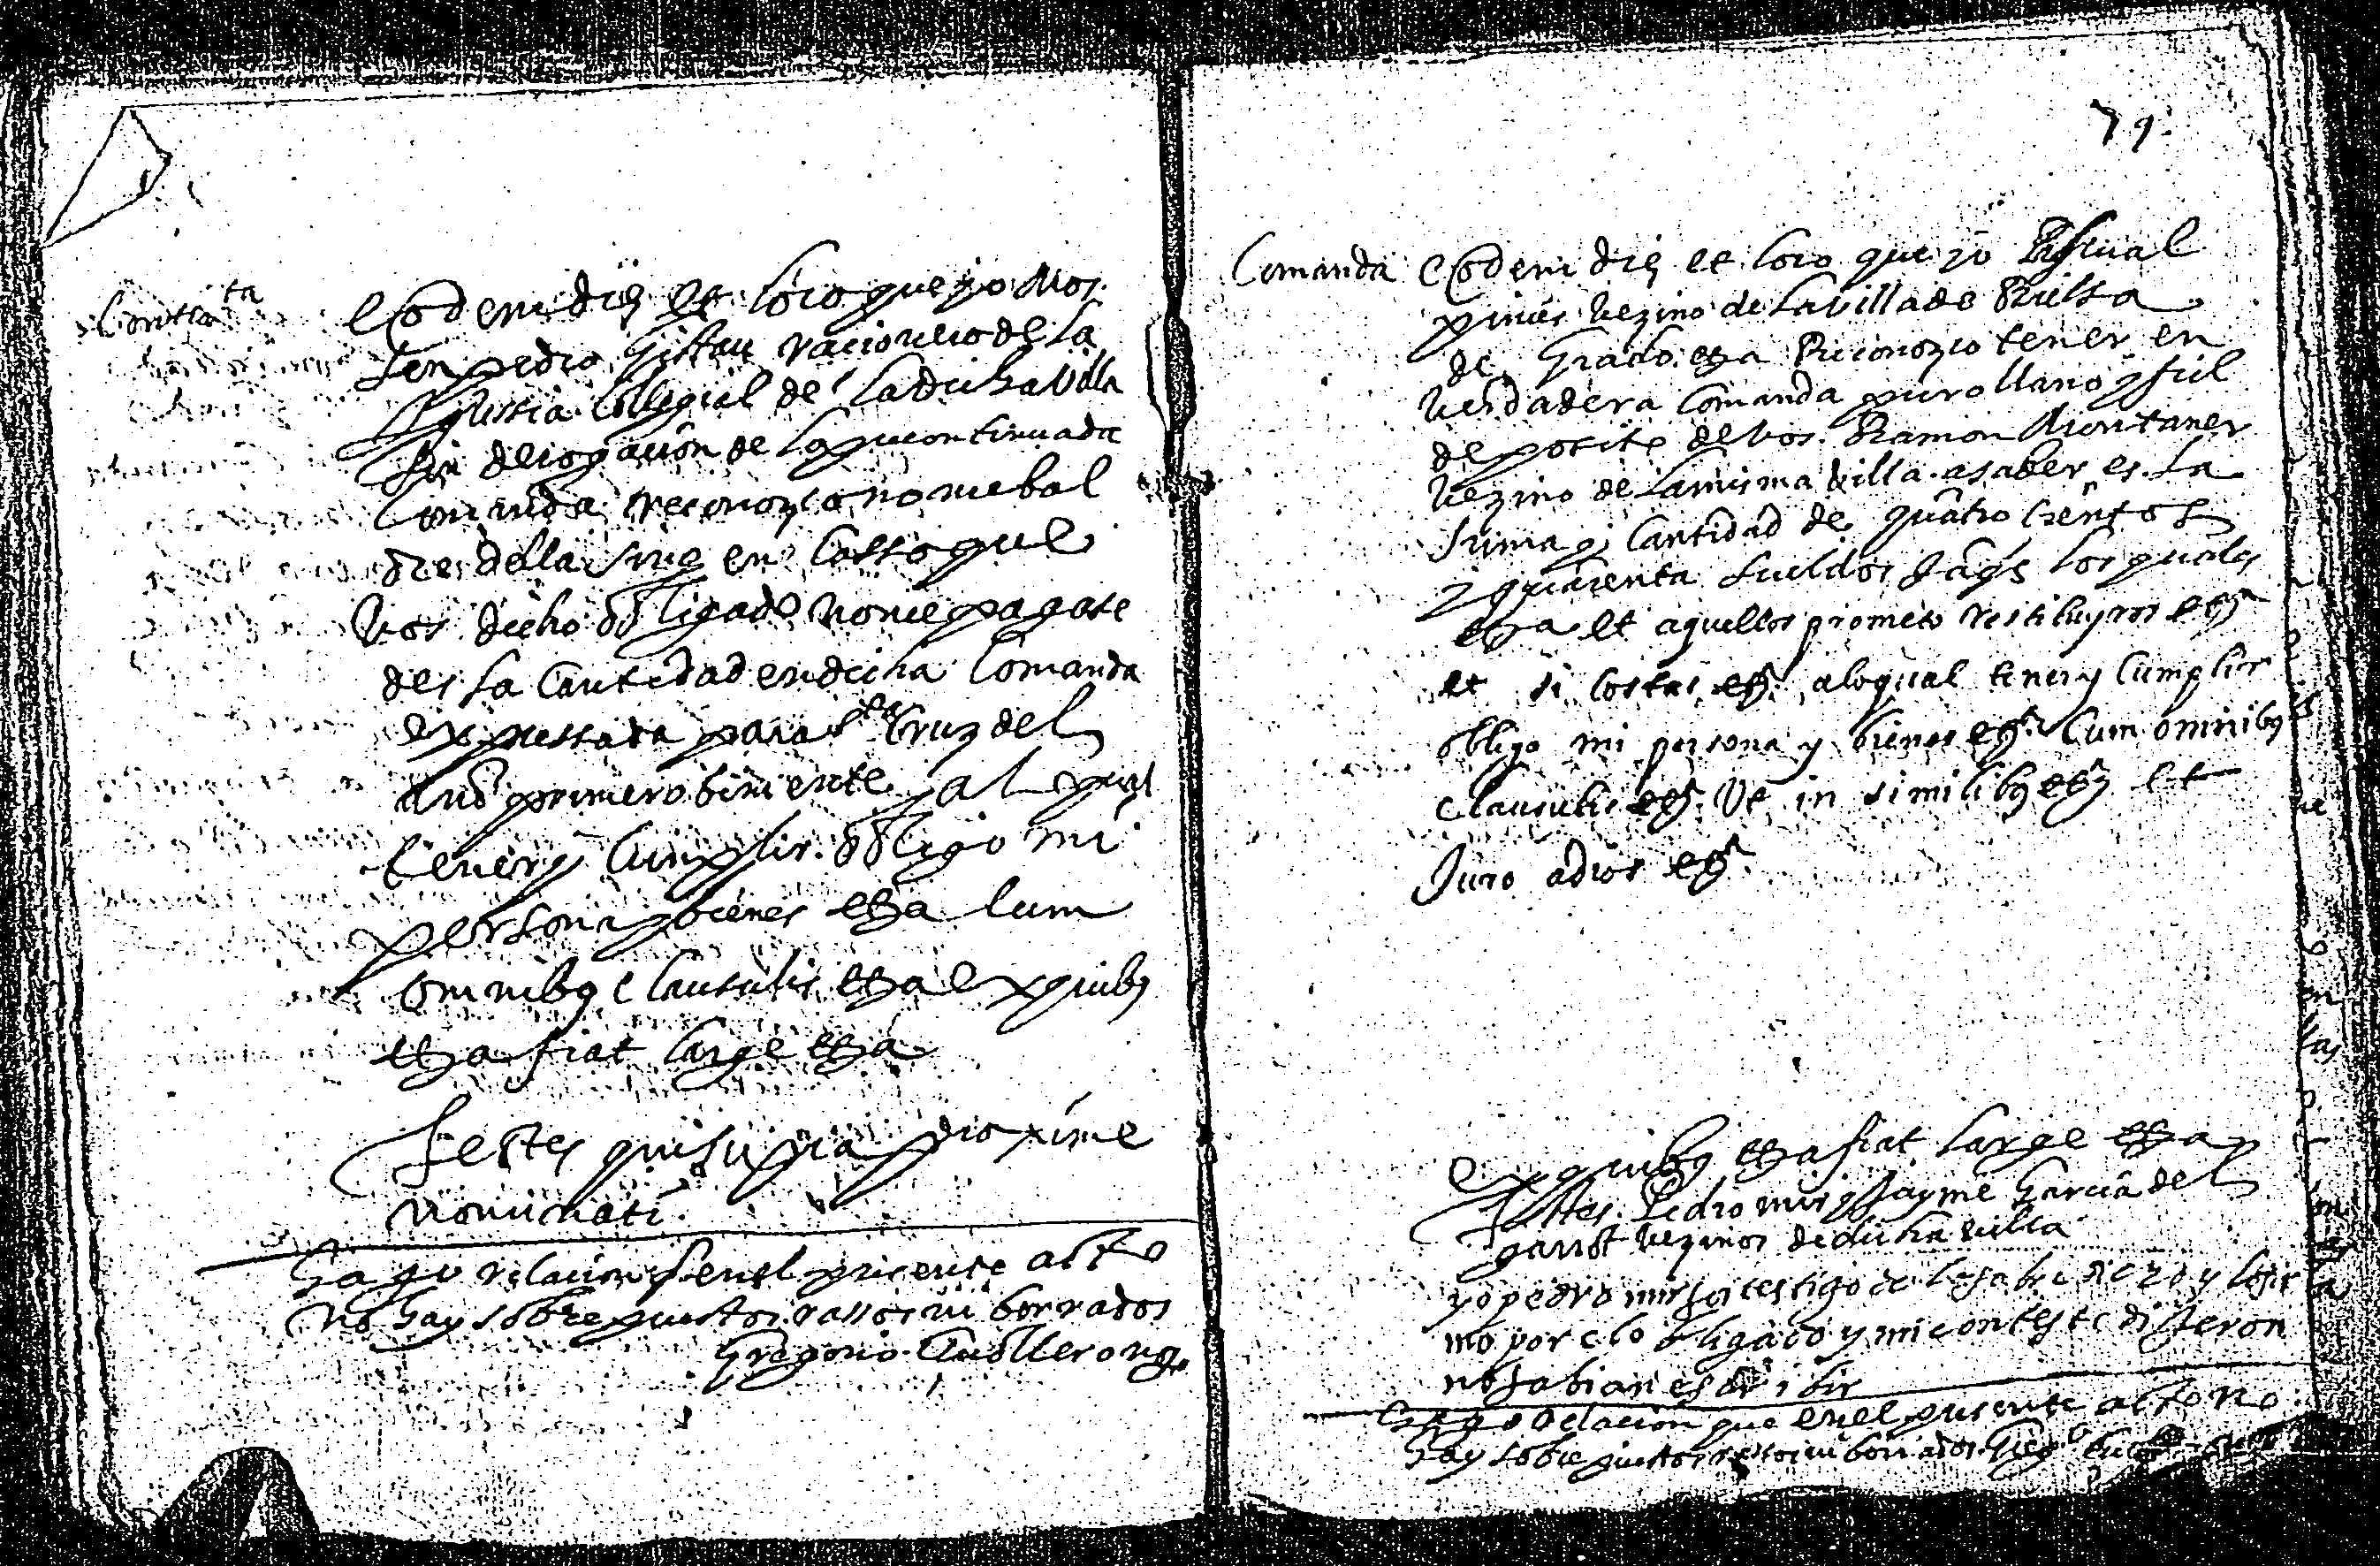 Contracta
Eodem die et loco que yo Mos
sen Pedro Gistau racionero de la
Yglesia Collegial de la dicha Villa
sin derogacion de la precontinuada
Comanda reconozco no me bal
dre della sino en casso que
Vos dicho obligado no me pagase
des la Cantidad en dicha Comanda
expressada para Sta Cruz del
año primero biniente y al qual
tener y Cumplir obligo mi
persona y bienes etza Cum
omnibus clausulis etza ex quibus
etza fiat large etza
Testes qui supra proxime
nominati
Hago relacion q en el presente acto
no hay sobrepuestos rassos ni borrados
Gregorio
79
Comanda
Eodem die et loco que yo Pascual
pinies Vezino de la Villa de Bielsa
de Grado etza Reconozco tener en
Verdadera Comanda puro llano y fiel
deposito de Vos Ramon Montaner
Vezino de la misma villa asaber es la
suma y Cantidad de quatro Cientos
y quarenta sueldos Jaqs los quales
etza et aquellos prometo restituyros etza
et si costas etza alo qual tener y Cumplir
obligo mi persona y bienes etza Cum omnibus
Clausulis etza Vt in similibus etza et
Juro a dios etza
ex quibus etza fiat large etza
Testes Pedro mur y Jayme Garcia del
Vezinos de dicha villa
yo pedro mur soi testigo de lo sobre dicho y lo fir
mo por el obligado y mi conteste dixeron
no sabian escribir
Hago Relacion que en el presente acto no
hay sobrepuestos rassos ni borrados Grego